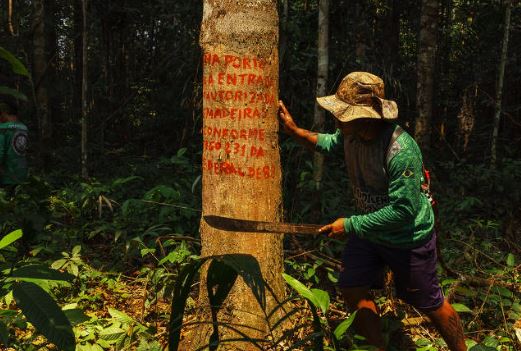 NA PORTE
A ENTRAD
AUTORIZADA
MADEIRAS
CONFORME
IGO 231 DA
DERAL DE8